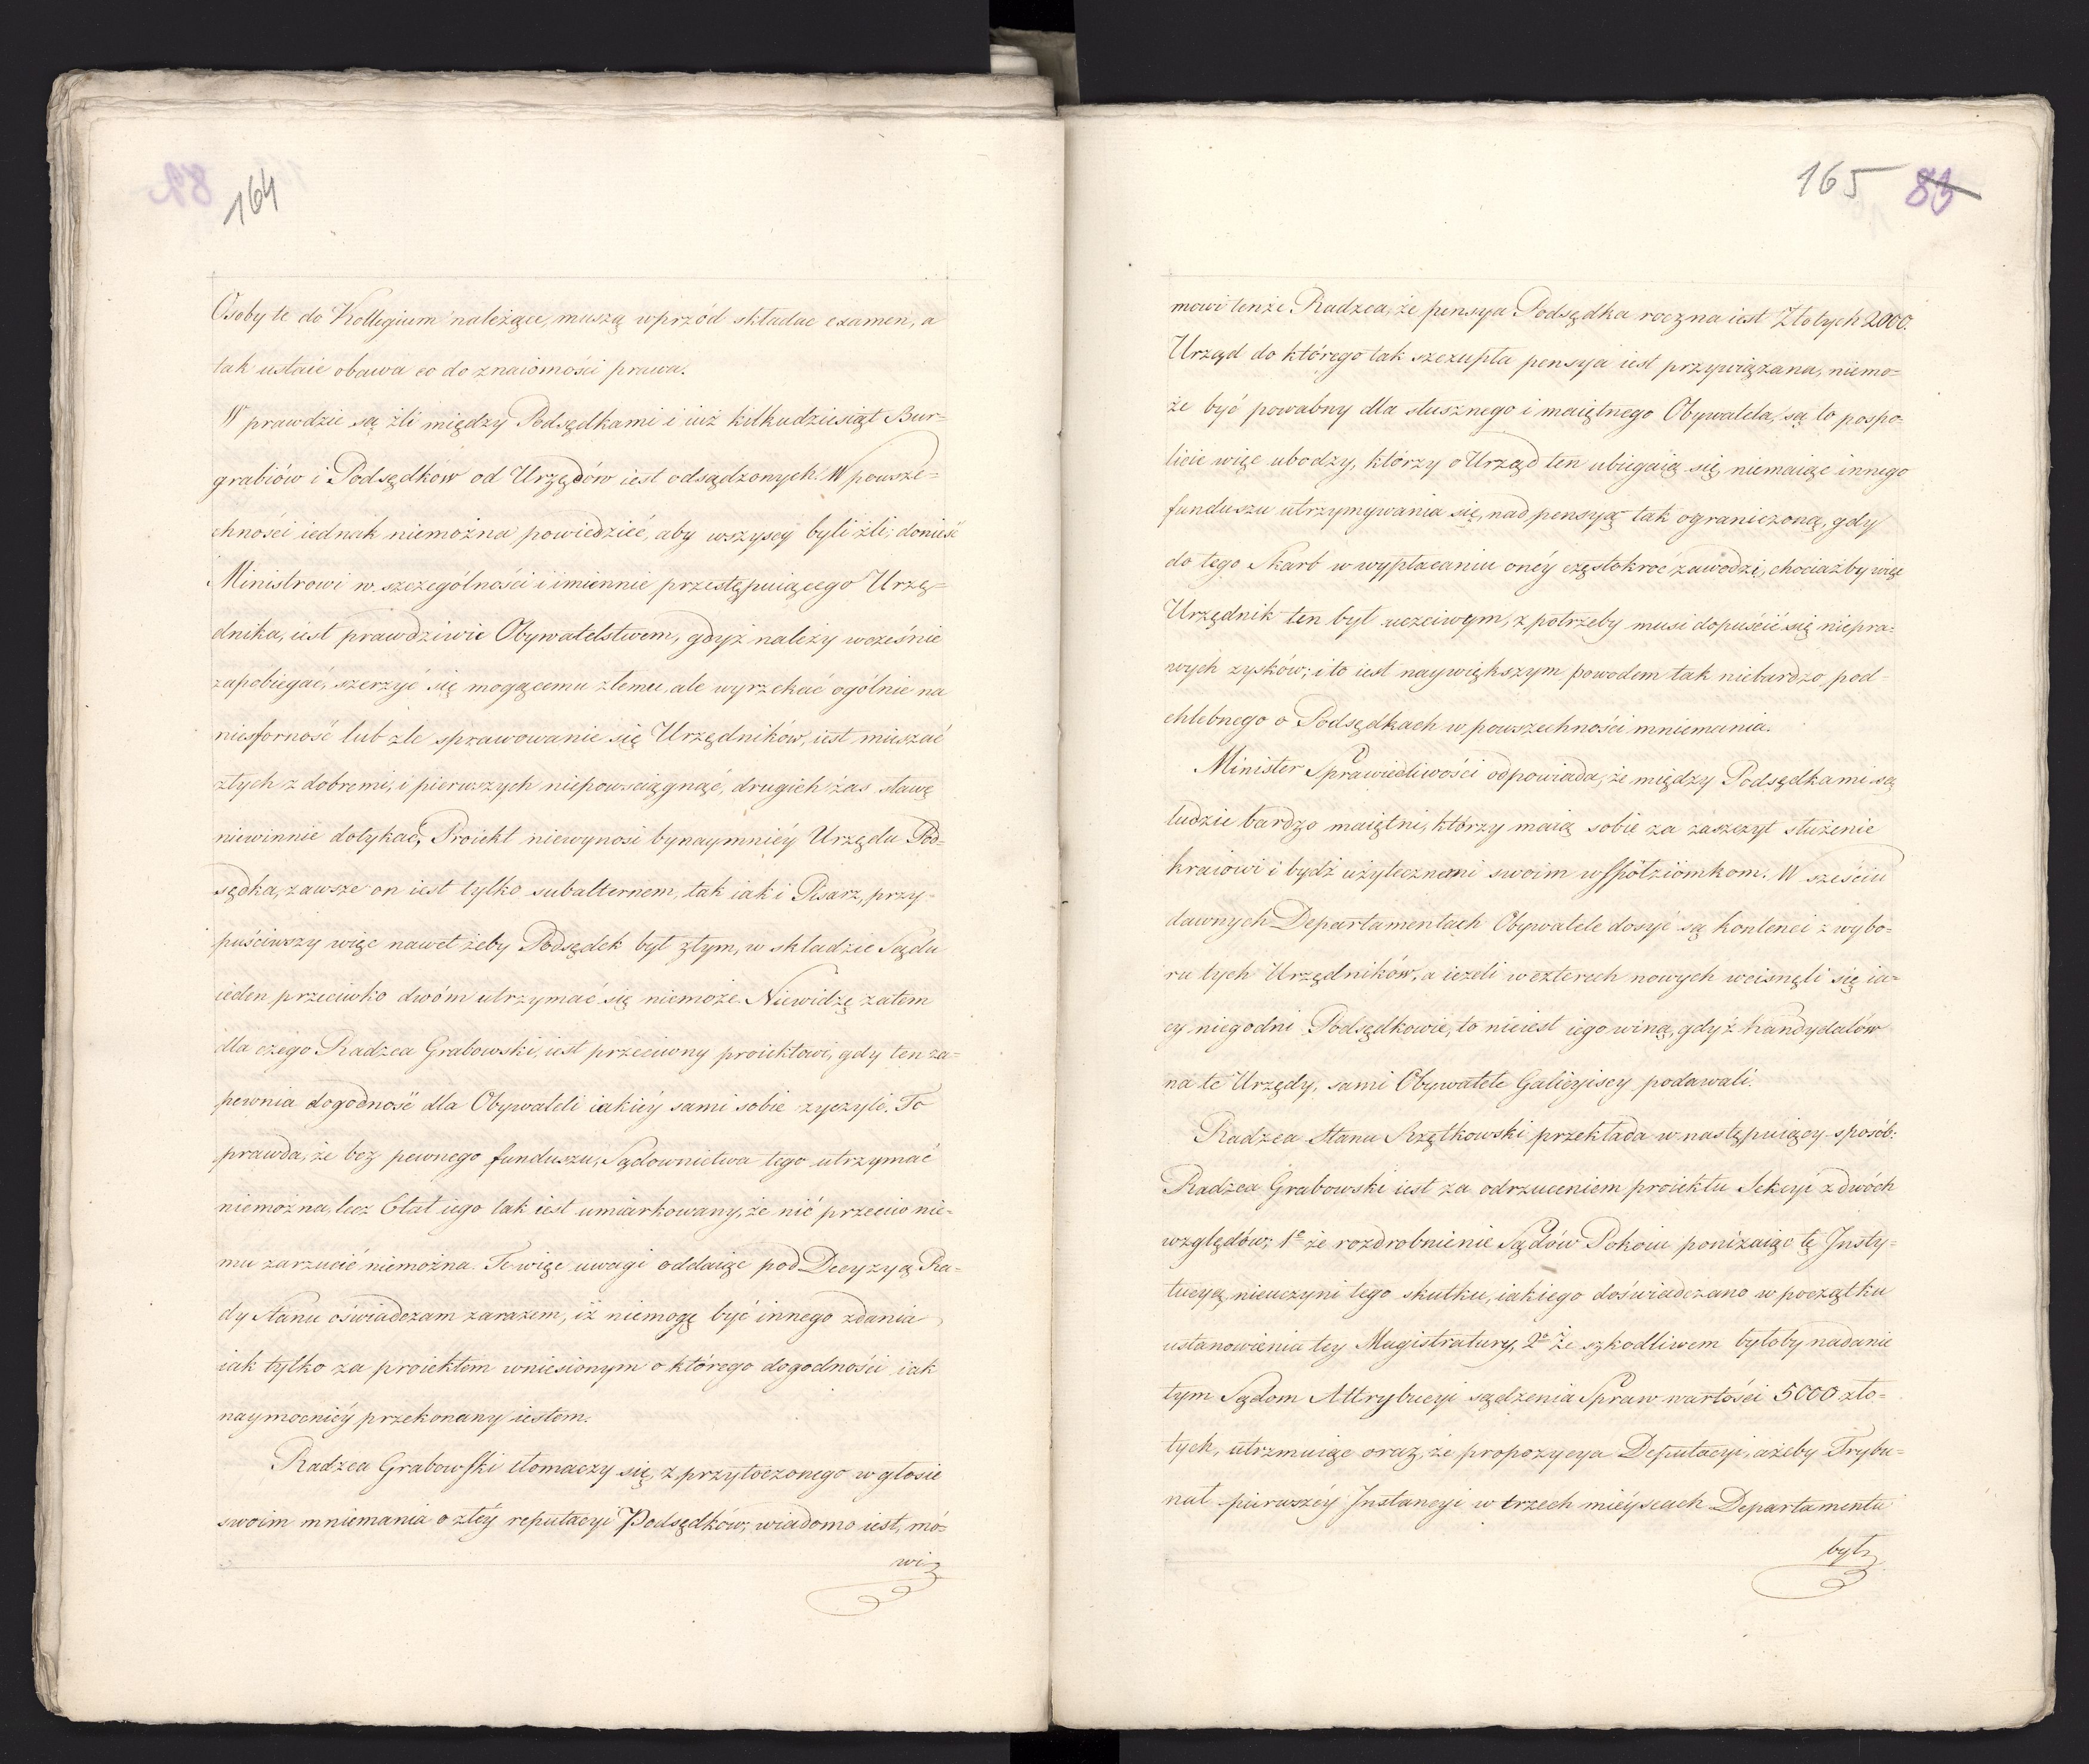 164
Osoby te do Kollegium należące, muszą wprzód składac examen, a
tak ustaie obawa co do znaiomości prawa.
W prawdzie są źli między Podsędkami i iuż kilkudziesiąt Bur-
grabiów i Podsędkow od Urzędów iest odsądzonych. W powsze-
chności iednak niemożna powiedzieć, aby wszyscy byli źli; donieść
Ministrowi w szczególności i imiennie przestępuiącego Urzę-
dnika, iest prawdziwie Obywatelstwem, gdyż należy wcześnie
zapobiegać, szerzyć się mogącemu złemu, ale wyrzekać ogólnie na
niesforność lub złe sprawowanie się Urzędników, iest mieszać
złych z dobremi, i pierwszych niepowsciągnąć, drugich zas sławę
niewinnie dotykać, Proiekt niewynosi bynaymniéy Urzędu Pod-
sędka, zawsze on iest tylko subalternem, tak iak i Pisarz, przy-
puściwszy więc nawet żeby Podsędek był złym, w składzie Sądu
ieden przeciwko dwóm utrzymać się niemoże. Niewidzę zatem
dla czego Radzca Grabowski, iest przeciwny proiektowi, gdy ten za-
pewnia dogodność dla Obywateli iakiéy sami sobie zyczyli. To
prawda, że bez pewnego funduszu, Sądownictwa tego utrzymać
niemożna, lecz Etat iego tak iest umiarkowany, że nić przeciw nie-
mu zarzucić niemożna. Te więc uwagi oddaiąc pod Decyzyą Ra-
dy Stanu oświadczam zarazem, iż niemogę być innego zdania
iak tylko za proiektem wniesionym o którego dogodności iak
naymocniéy przekonany iestem.
Radzca Grabowski tłomaczy się, z przytoczonego w głosie
swoim mniemania o złéy reputacyi Podsędków; wiadomo iest, mó-
wi
165 83
mowi tenże Radzca, że pensya Podsędka roczna iest Złotych 2000.
Urząd do którego tak szczupła pensya iest przywiązana, niemo-
że być powabny dla słusznego i maiętnego Obywatela, są to pospo-
licie więc ubodzy, którzy o Urząd ten ubiegaią się, niemaiąc innego
funduszu utrzymywania się, nad pensyą tak ograniczoną, gdy
do tego Skarb w wypłacaniu onéy częstokroć zawodzi, chociażby więc
Urzędnik ten był uczciwym, z potrzeby musi dopuścić się niepra-
wych zysków; i to iest naywiększym powodem tak niebardzo pod-
chlebnego o Podsędkach w powszechności mniemania.
Minister Sprawiedliwości odpowiada, że między Podsędkami są
ludzie bardzo maiętni, którzy maią sobie za zaszczyt służenie
kraiowi i bydź użytecznemi swoim wspołziomkom. W sześciu
dawnych Departamentach Obywatele dosyć są kontenci z wybo-
ru tych Urzędników, a ieżeli w czterech nowych wcisnęli się ia-
cy niegodni Podsędkowie, to nieiest iego winą, gdyż kandydatów
na te Urzędy, sami Obywatele Galicyiscy podawali.
Radzca Stanu Rzętkowski przekłada w następuiący sposób:
Radzca Grabowski iest za odrzuceniem proiektu Sekcyi z dwóch
względów; 1e że rozdrobnienie Sądów Pokoiu poniżaiąc tę Insty-
tucyą, nieuczyni tego skutku, iakiego doświadczano w początku
ustanowienia tey Magistratury, 2e Że szkodliwem byłoby nadanie
tym Sądom Attrybucyi sądzenia Spraw wartości 5000 zło-
tych, utrzmuiąc oraz, że propozycya Deputacyi, ażeby Trybu-
nał pierwszéy Instancyi w trzech mieyscach Departamentu
był